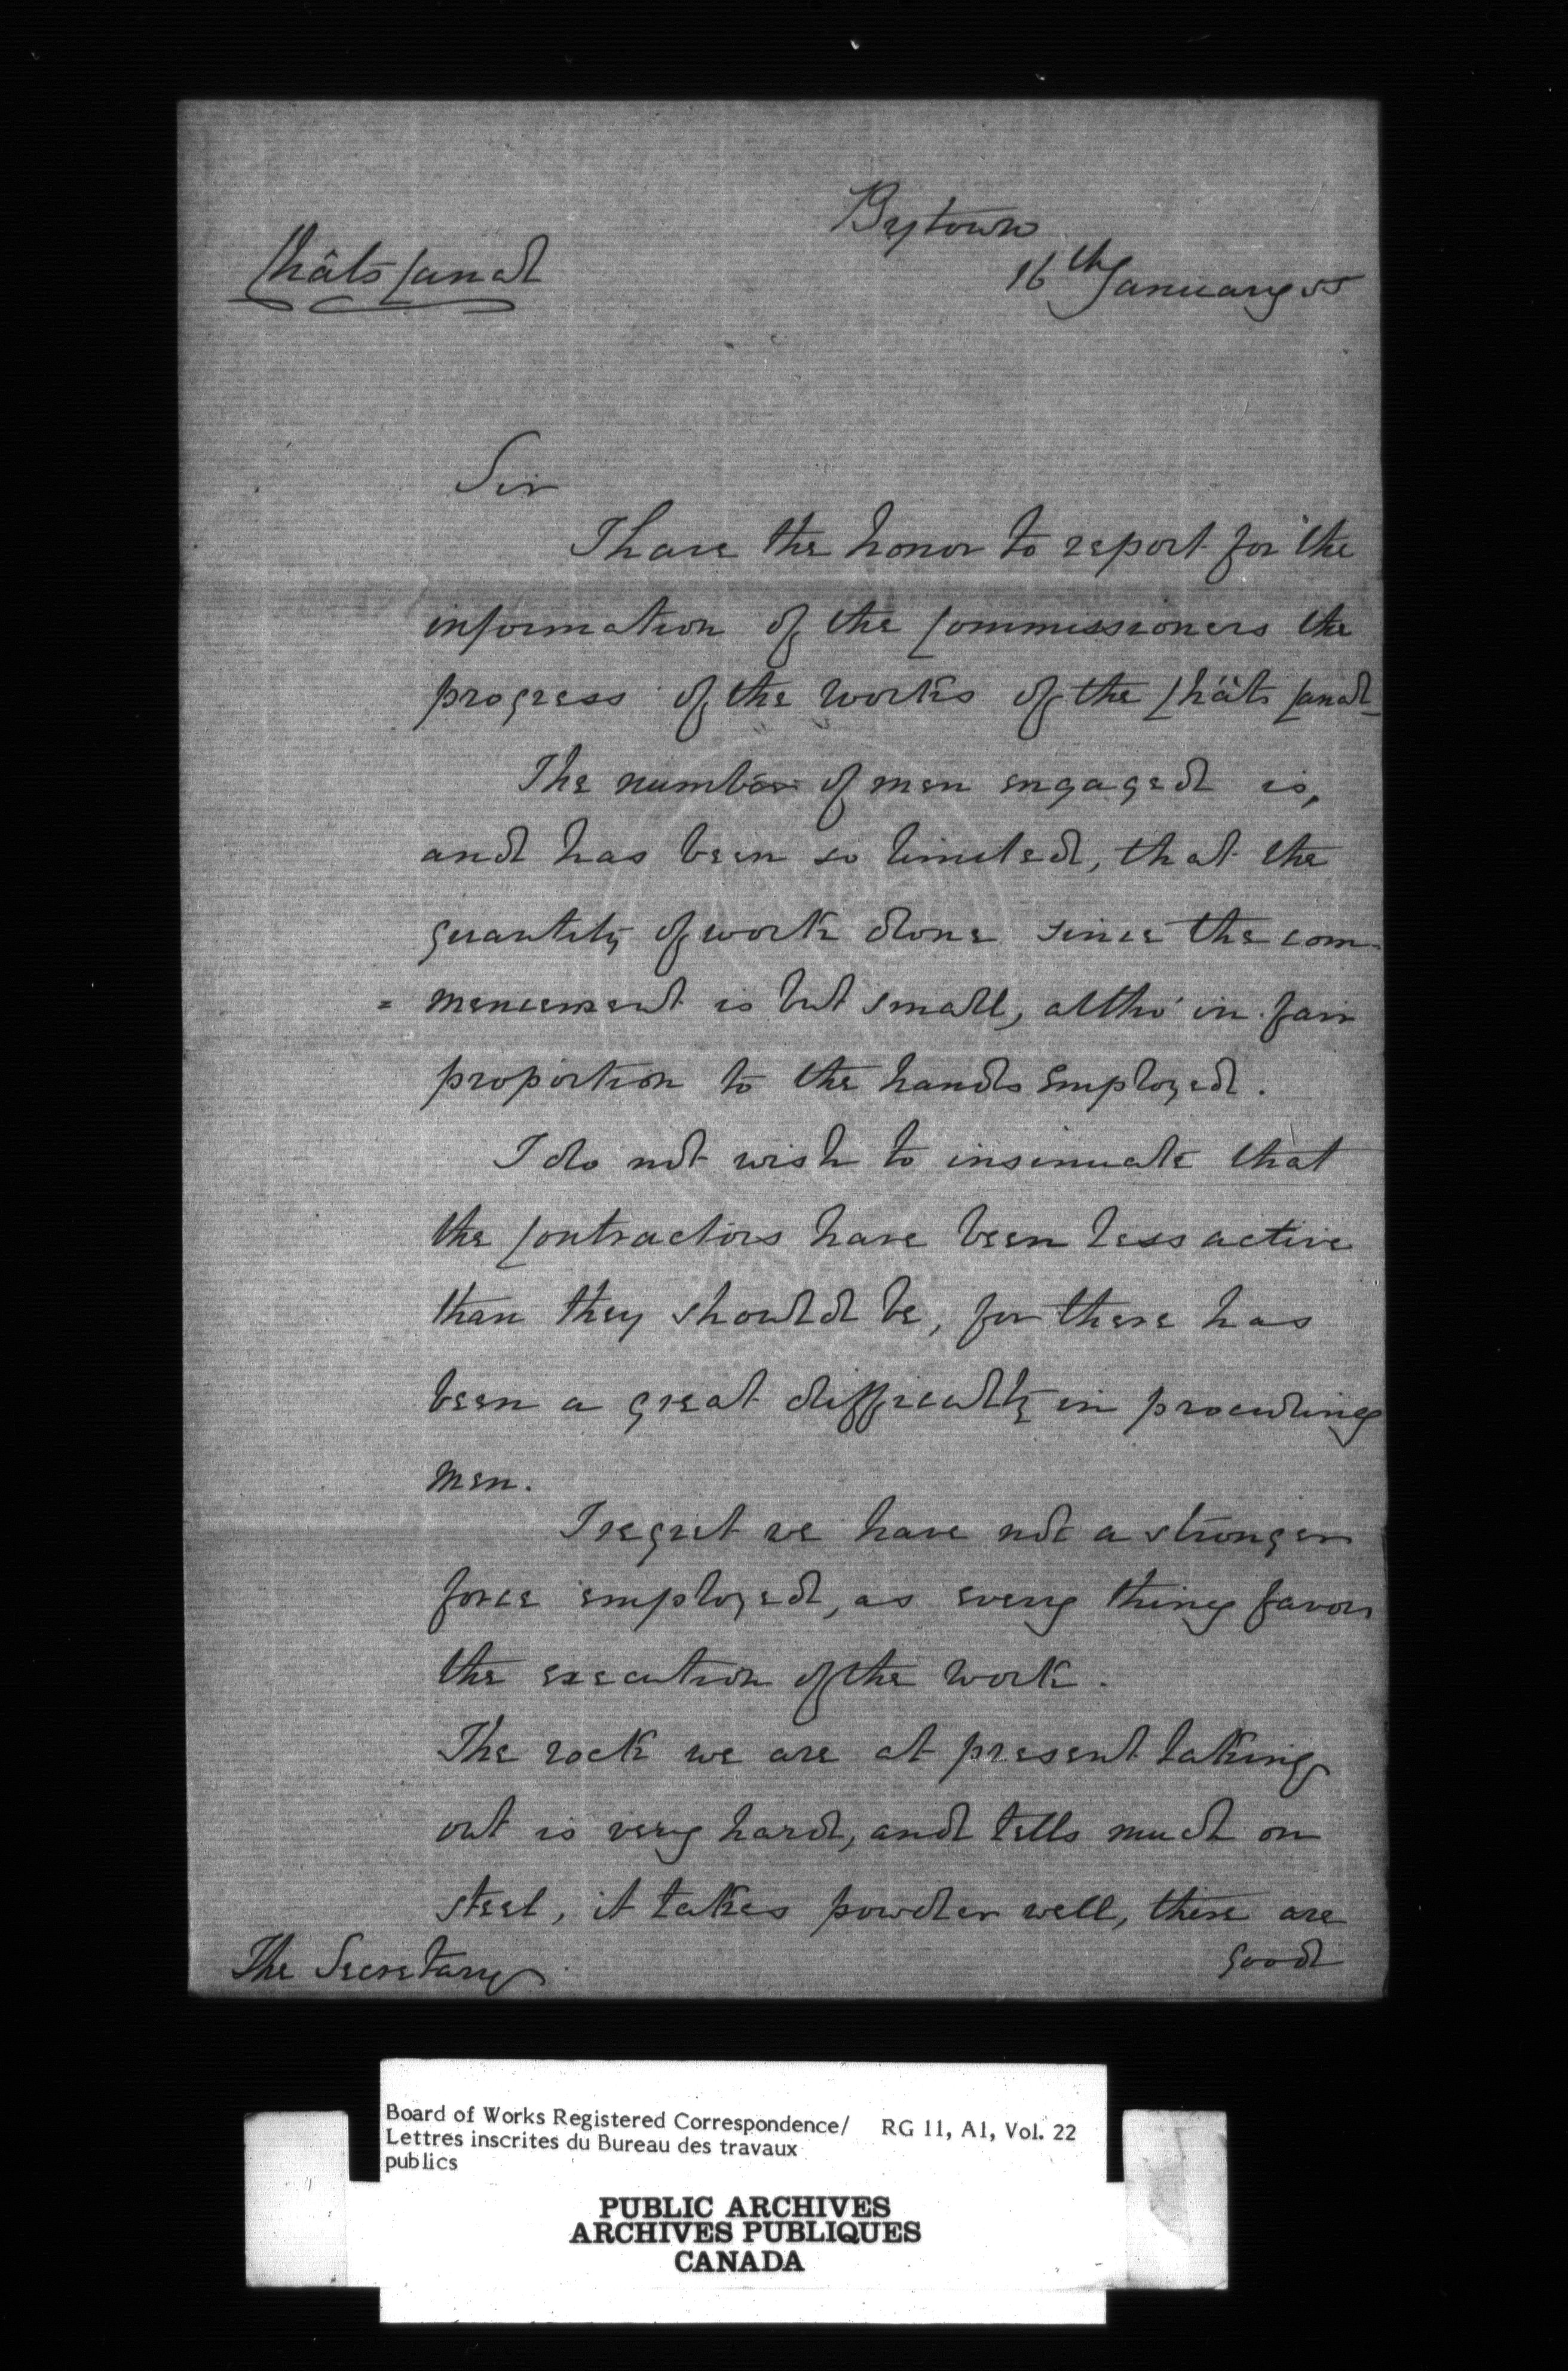 Bytown
Châts Canal
16th January 55
Sir
I have the honor to report for the
information of the Commissioners the
progress of the works of the Châts Canal
The number of men engaged is,
and has been so limited, that the
quantity of work done since the com-
= mencement is but small, altho' in fair
proportion to the hands Employed.
I do not wish to insinuate that
the Contractors have been less active
than they should be, for there has
been a great difficulty in procuring
men.
I regret we have not a stronger
force employed, as every thing favors
the execution of the work.
The rock we are at present taking
out is very hard, and tells much on
steel, it takes powder well, there are
good
The Secretary
Board of Works Registered Correspondence/ RG 11, A1, Vol. 22
Lettres inscrites du Bureau des travaux
publics
PUBLIC ARCHIVES
ARCHIVES PUBLIQUES
CANADA